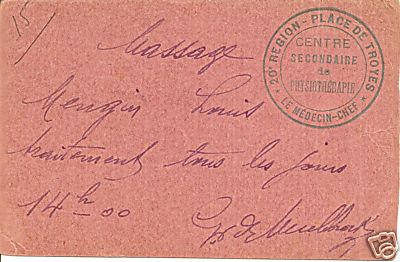 15/
Massage
20e REGION - PLACE DE TROYES
CENTRE
SECONDAIRE
de
PHYSIOTHÉRAPIE
* LE MÉDECIN-CHEF *
Mengin Louis
traitement tous les jours
14h00